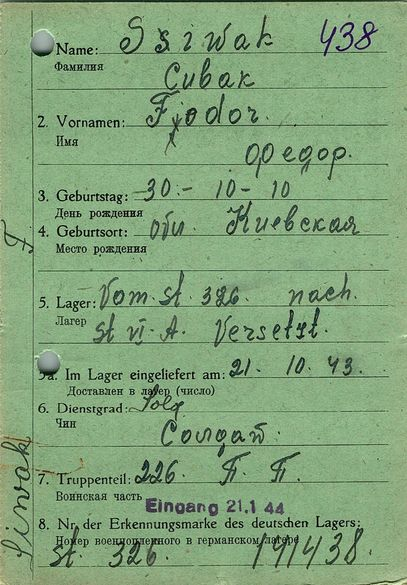 1. Name: Ssiwak 438
Фамилия
Сивак
2. Vornamen: Fjodor.
Имя
Федор.
3. Geburtstag: 30.- 10-10
День рождения
4. Geburtsort: обл. Киевская
Место рождения
5. Lager: Vom. st. 326. nach.
Лагерь
st VI-A. Versetzt.
5a. Im Lager eingeliefert am: 21. 10. 43.
Доставлен в лагерь (число)
6. Dienstgrad: Solg
Чин
Солдат.
7. Truppenteil: 226. П. П.
Воинская часть
Eingang 21.1 44
8. Nr. der Erkennungsmarke des deutschen Lagers:
Номер военнопленного в германском лагере
st. 326.
Siwak F